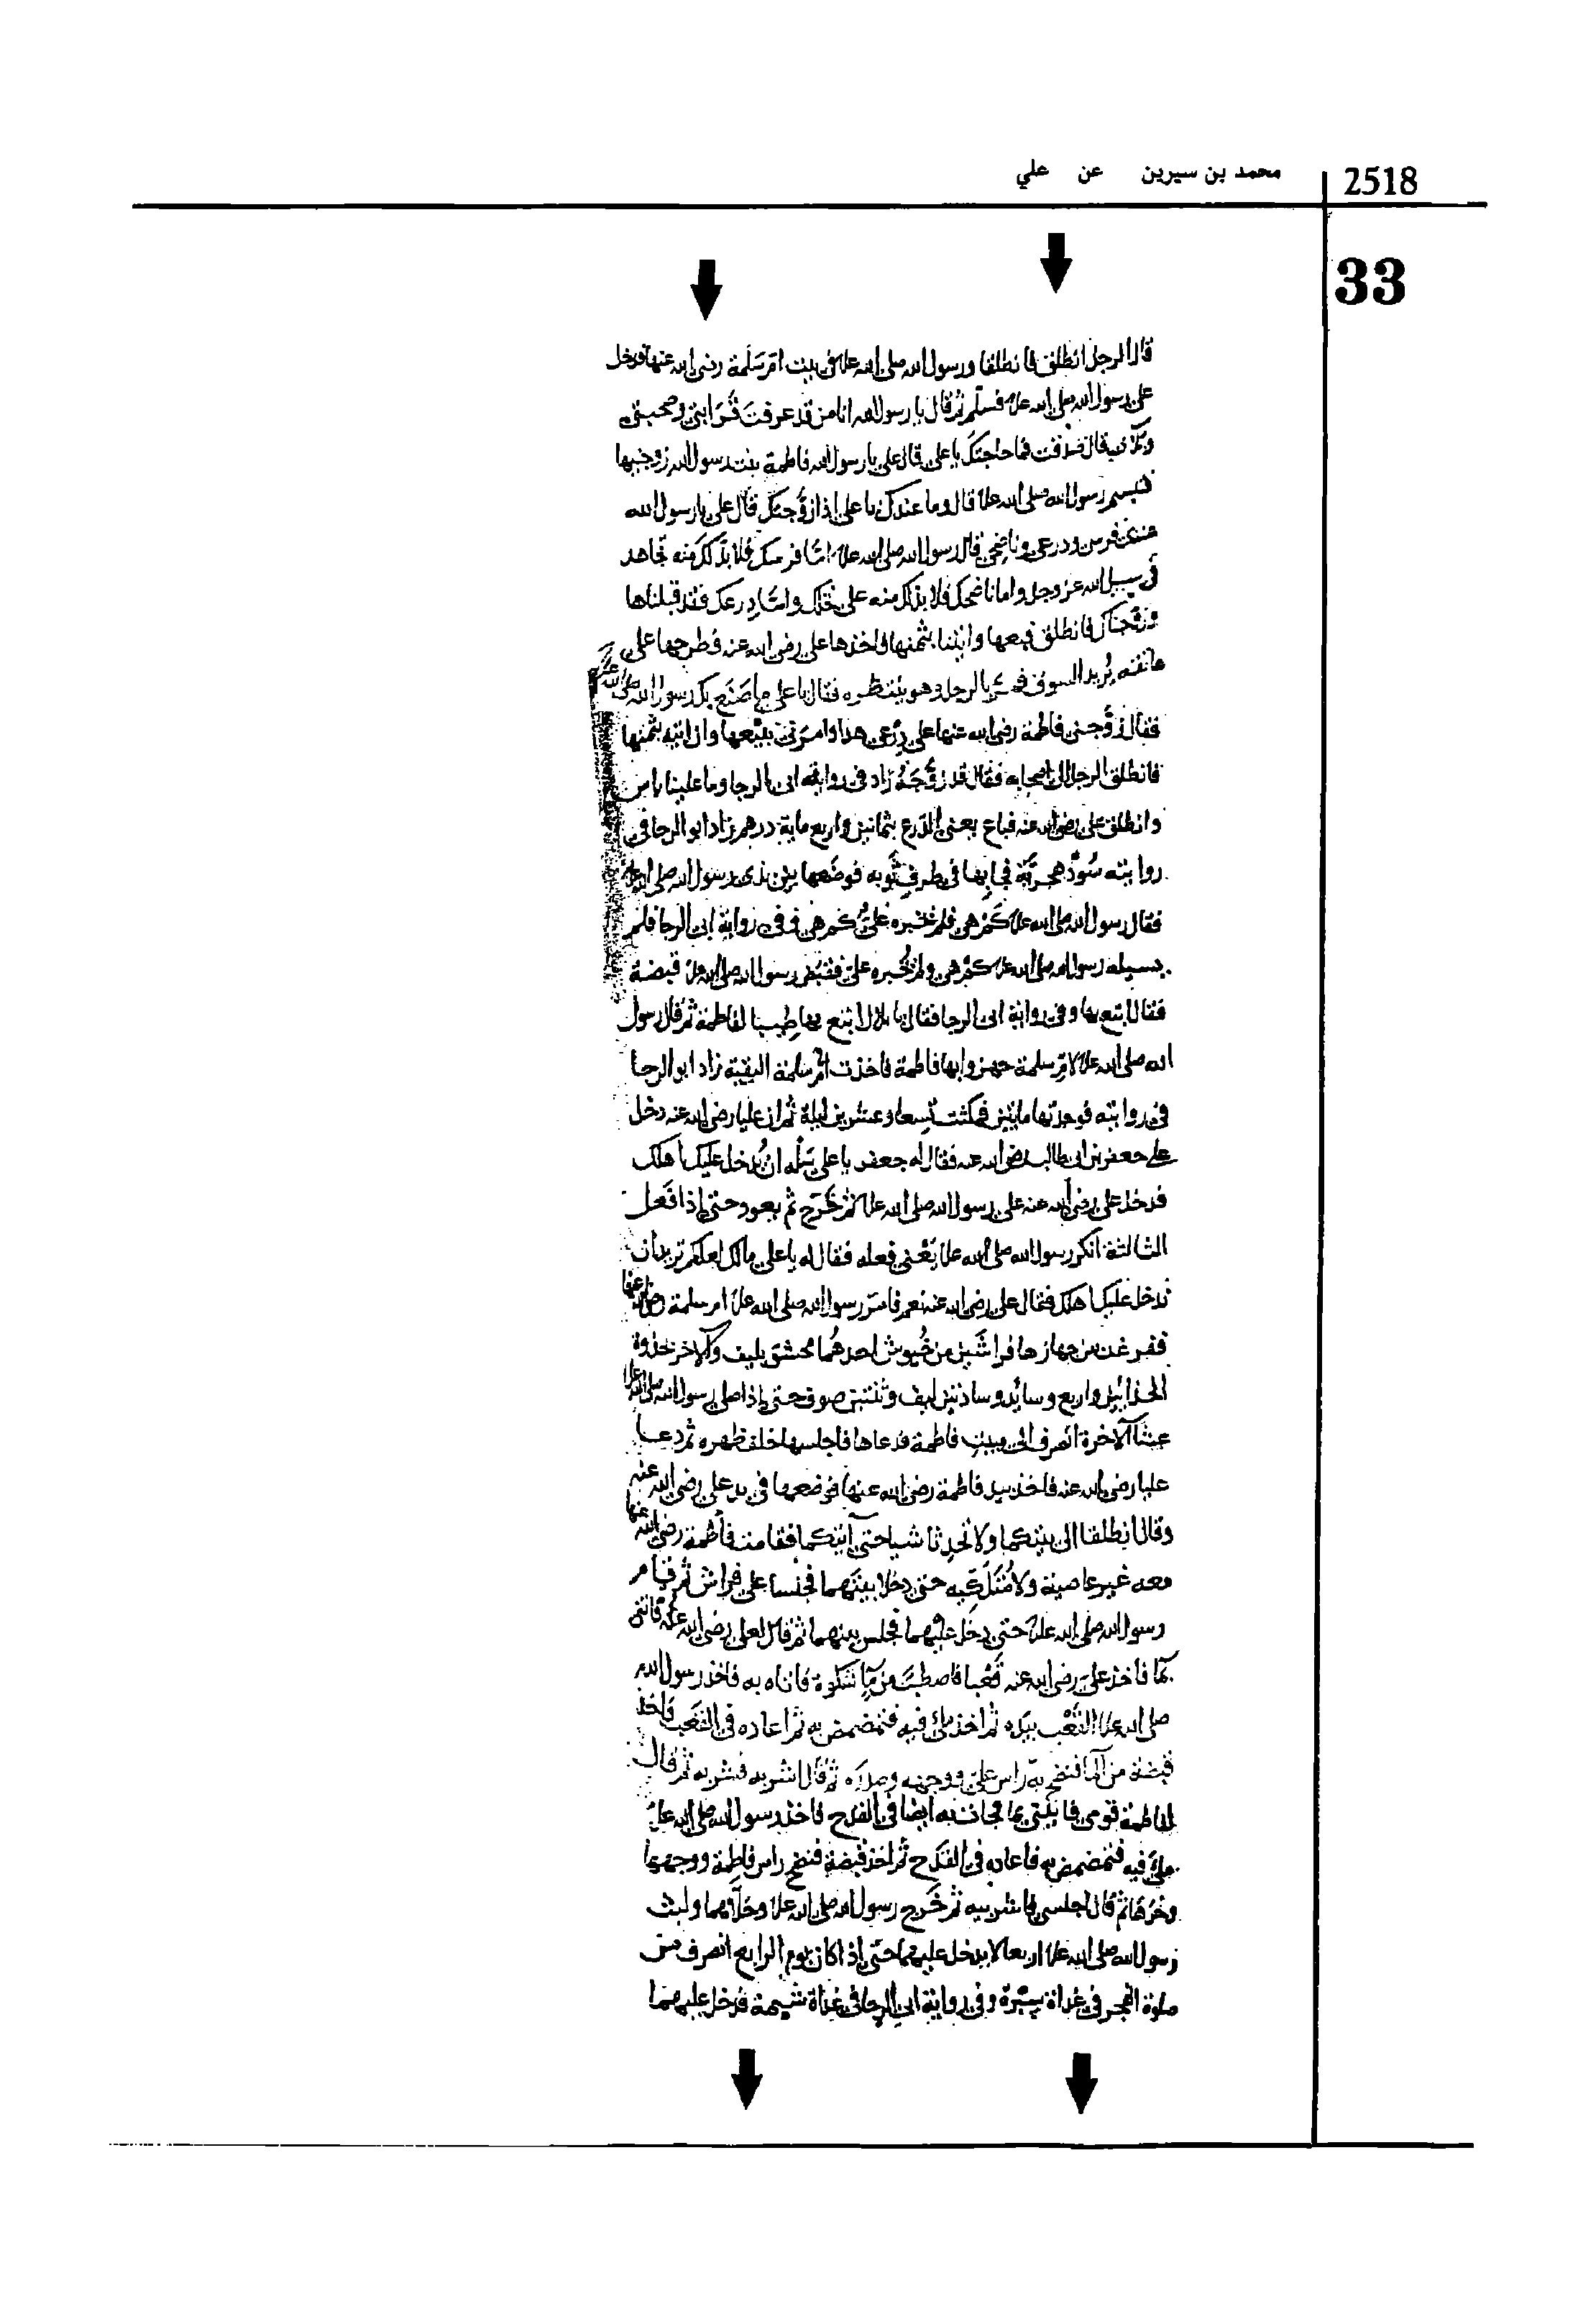 2518
محمد بن سيرين عن علي
33
قال الرجل انطلق فانطلقا ورسول الله صلى الله علا في بيت ام سلمة رضى الله عنها فدخل
على رسول الله صلى الله علا فسلم ثم قال يا رسول الله انا من قد عرفت قرابتي وصحبتي
قال صدقت فما حاجتك يا على قال على يا رسول الله فاطمة بنت رسول الله زوجنيها
فتبسم رسول الله صلى الله علا قال وما عندك يا على اذا زوجتك قال على يا رسول الله
عندى فرس ودرعى وناضحى قال رسول الله صلى الله علا اما فرسك فلا بد لك منه تجاهد
فى سبيل الله عز وجل واما ناضحك فلا بد لك منه على واما درعك فقد قبلناها
وزوجناك فانطلق فبعها وايتنا بثمنها فاخذها على رضى الله عنه فطرحها على
عاتقه يريد السوق بالرجل وهو ينتظره فقال يا على ما صنع بك رسول الله صلى الله
فقال زوجنى فاطمة رضى الله عنها على درعى هذا وامرنى ببيعها وان اتيه بثمنها
فانطلق الرجل الى اصحابه فقال قد زوجه زاد فى روايته ابى الرجا وما علينا باس
وانطلق على رضى الله عنه فباع يعنى الدرع بثمانين واربع ماية درهم زاد ابو الرجا فى
روايته سود هجرية فجا بها فى طرف ثوبه فوضعها بين يدى رسول الله صلى الله علا
فقال رسول الله صلى الله علا كم هى فلم يخبره على كم هى وفى رواية ابى الرجا فلم
يسيله رسول الله صلى الله علا كم هى ولم يخبره على فقبض رسول الله صلى الله علا قبضة
فقال ابتع بها وفى رواية ابى الرجا فقال يا بلال ابتع بها طيبا لفاطمة ثم قال رسول
الله صلى الله علا لام سلمة جهزوا بها فاطمة فاخذت ام سلمة البقية زاد ابو الرجا
فى روايته فوجدتها مايتين فمكثت تسعا وعشرين ليلة ثم ان عليا رضى الله عنه دخل
على جعفر بن ابى طالب رضى الله عنه فقال له جعفر يا على سله ان يدخل عليك اهلك
فدخل على رضى الله عنه على رسول الله صلى الله علا ثم خرج ثم يعود حتى اذا فعل
الثالثة انكر رسول الله صلى الله علا يعنى فعله فقال له يا على مالك لعلكم تريد ان
ندخل عليك اهلك فقال على رضى الله عنه نعم فامر رسول الله صلى الله علا ام سلمة رضى الله عنها
ففرغت من جهازها فراشين من خيوش احدهما محشو بليف والاخر بحذوة
الحذائين واربع وسايد وسادتين ليف وثنتين صوف حتى اذا صلى رسول الله صلى الله علا
عشا الاخرة انصرف الى بيت فاطمة فدعاها فاجلسها خلف ظهره ثم دعا
عليا رضى الله عنه فاخذ بيد فاطمة رضى الله عنها فوضعها فى يد على رضى الله عنه
وقال انطلقا الى بيتكما ولا تحدثا شيا حتى آتيكما فقامت فاطمة رضى الله عنها
معه غير عاصية ولا حتى دخلا بيتهما فجلسا على فراش ثم قام
رسول الله صلى الله علا حتى دخل عليهما فجلس بينهما ثم قال لعلى رضى الله عنه ائتنى
بما فاخذ على رضى الله عنه قعبا فاصطب من ما شكوة فاتاه به فاخذ رسول الله
صلى الله علا القعب بيده ثم اخذ ملئ فيه فتمضمض به ثم اعاده فى القعب فاخذ
قبضة من الما فنضح به راس على ووجهه وصدره ثم قال اشربه فشربه ثم قال
لفاطمة قومى فايتنى بما فجاءت به ايضا فى القدح فاخذ رسول الله صلى الله علا
ملئ فيه فتمضمض به فاعاده فى القدح ثم اخذ قبضة فنضح راس فاطمة ووجهها
ونحرها ثم قال اجلسى فاشربيه ثم خرج رسول الله صلى الله علا وخلا بهما ولبث
رسول الله صلى الله علا اربعا لا يدخل عليهما حتى اذا كان يوم الرابع انصرف من
صلوة الفجر فى غداة سبرة وفى رواية ابى الرجا فى غداة شبمة فدخل عليهما